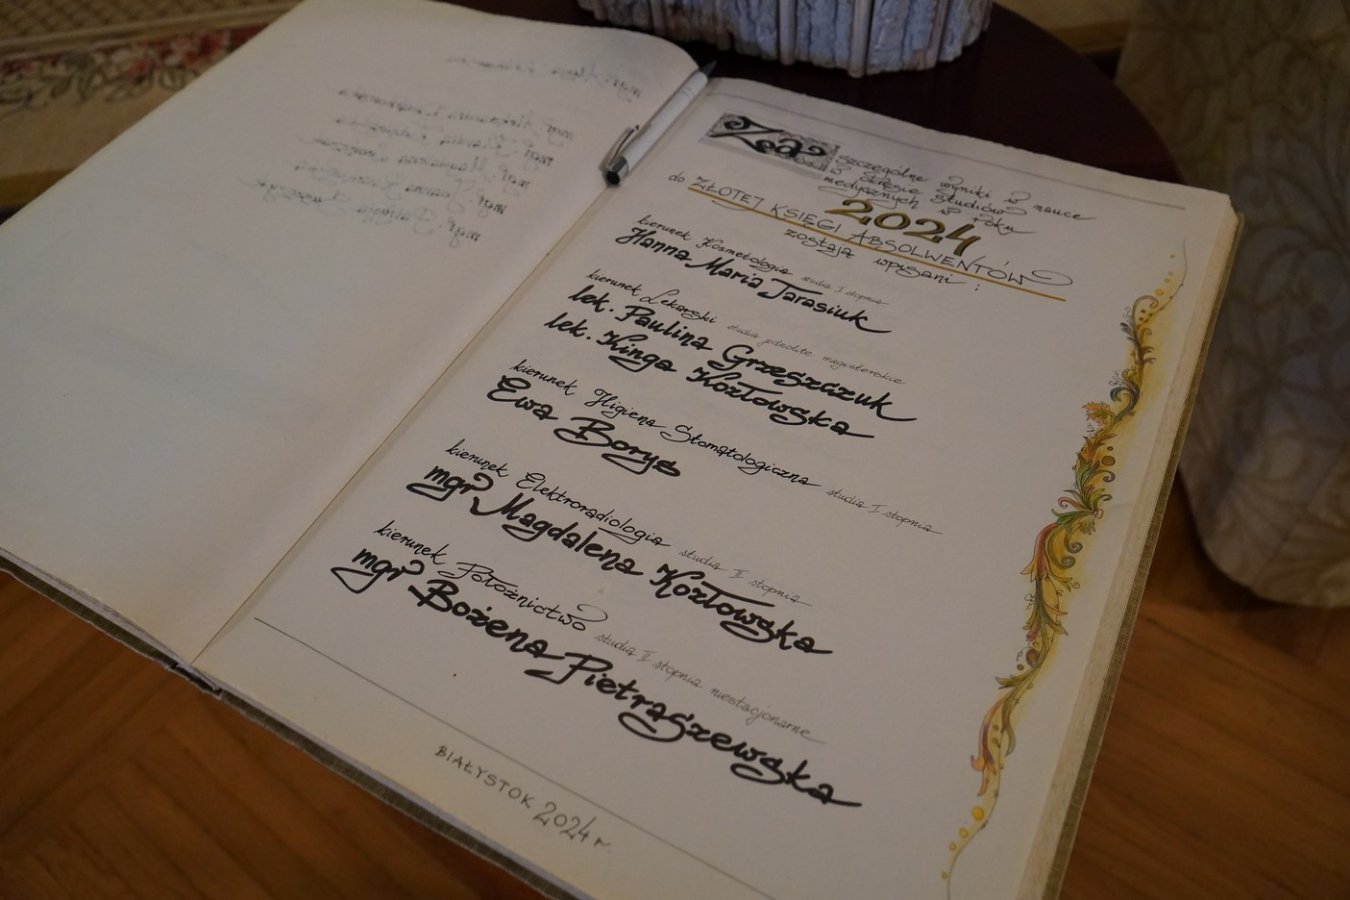 Za szczególne wyniki w nauce
w okresie studiów
medycznych w roku
2024
do ZŁOTEJ KSIĘGI ABSOLWENTÓW
zostają wpisani:
kierunek Kosmetologia studia I stopnia
Hanna Maria Tarasiuk
kierunek Lekarski studia jednolite magisterskie
lek. Paulina Grzeszczuk
lek. Kinga Kozłowska
kierunek Higiena Stomatologiczna studia I stopnia
Ewa Borys
kierunek Elektroradiologia studia II stopnia
mgr Magdalena Kozłowska
kierunek Położnictwo studia II stopnia niestacjonarne
mgr Bożena Pietraszewska
BIAŁYSTOK 2024 r.